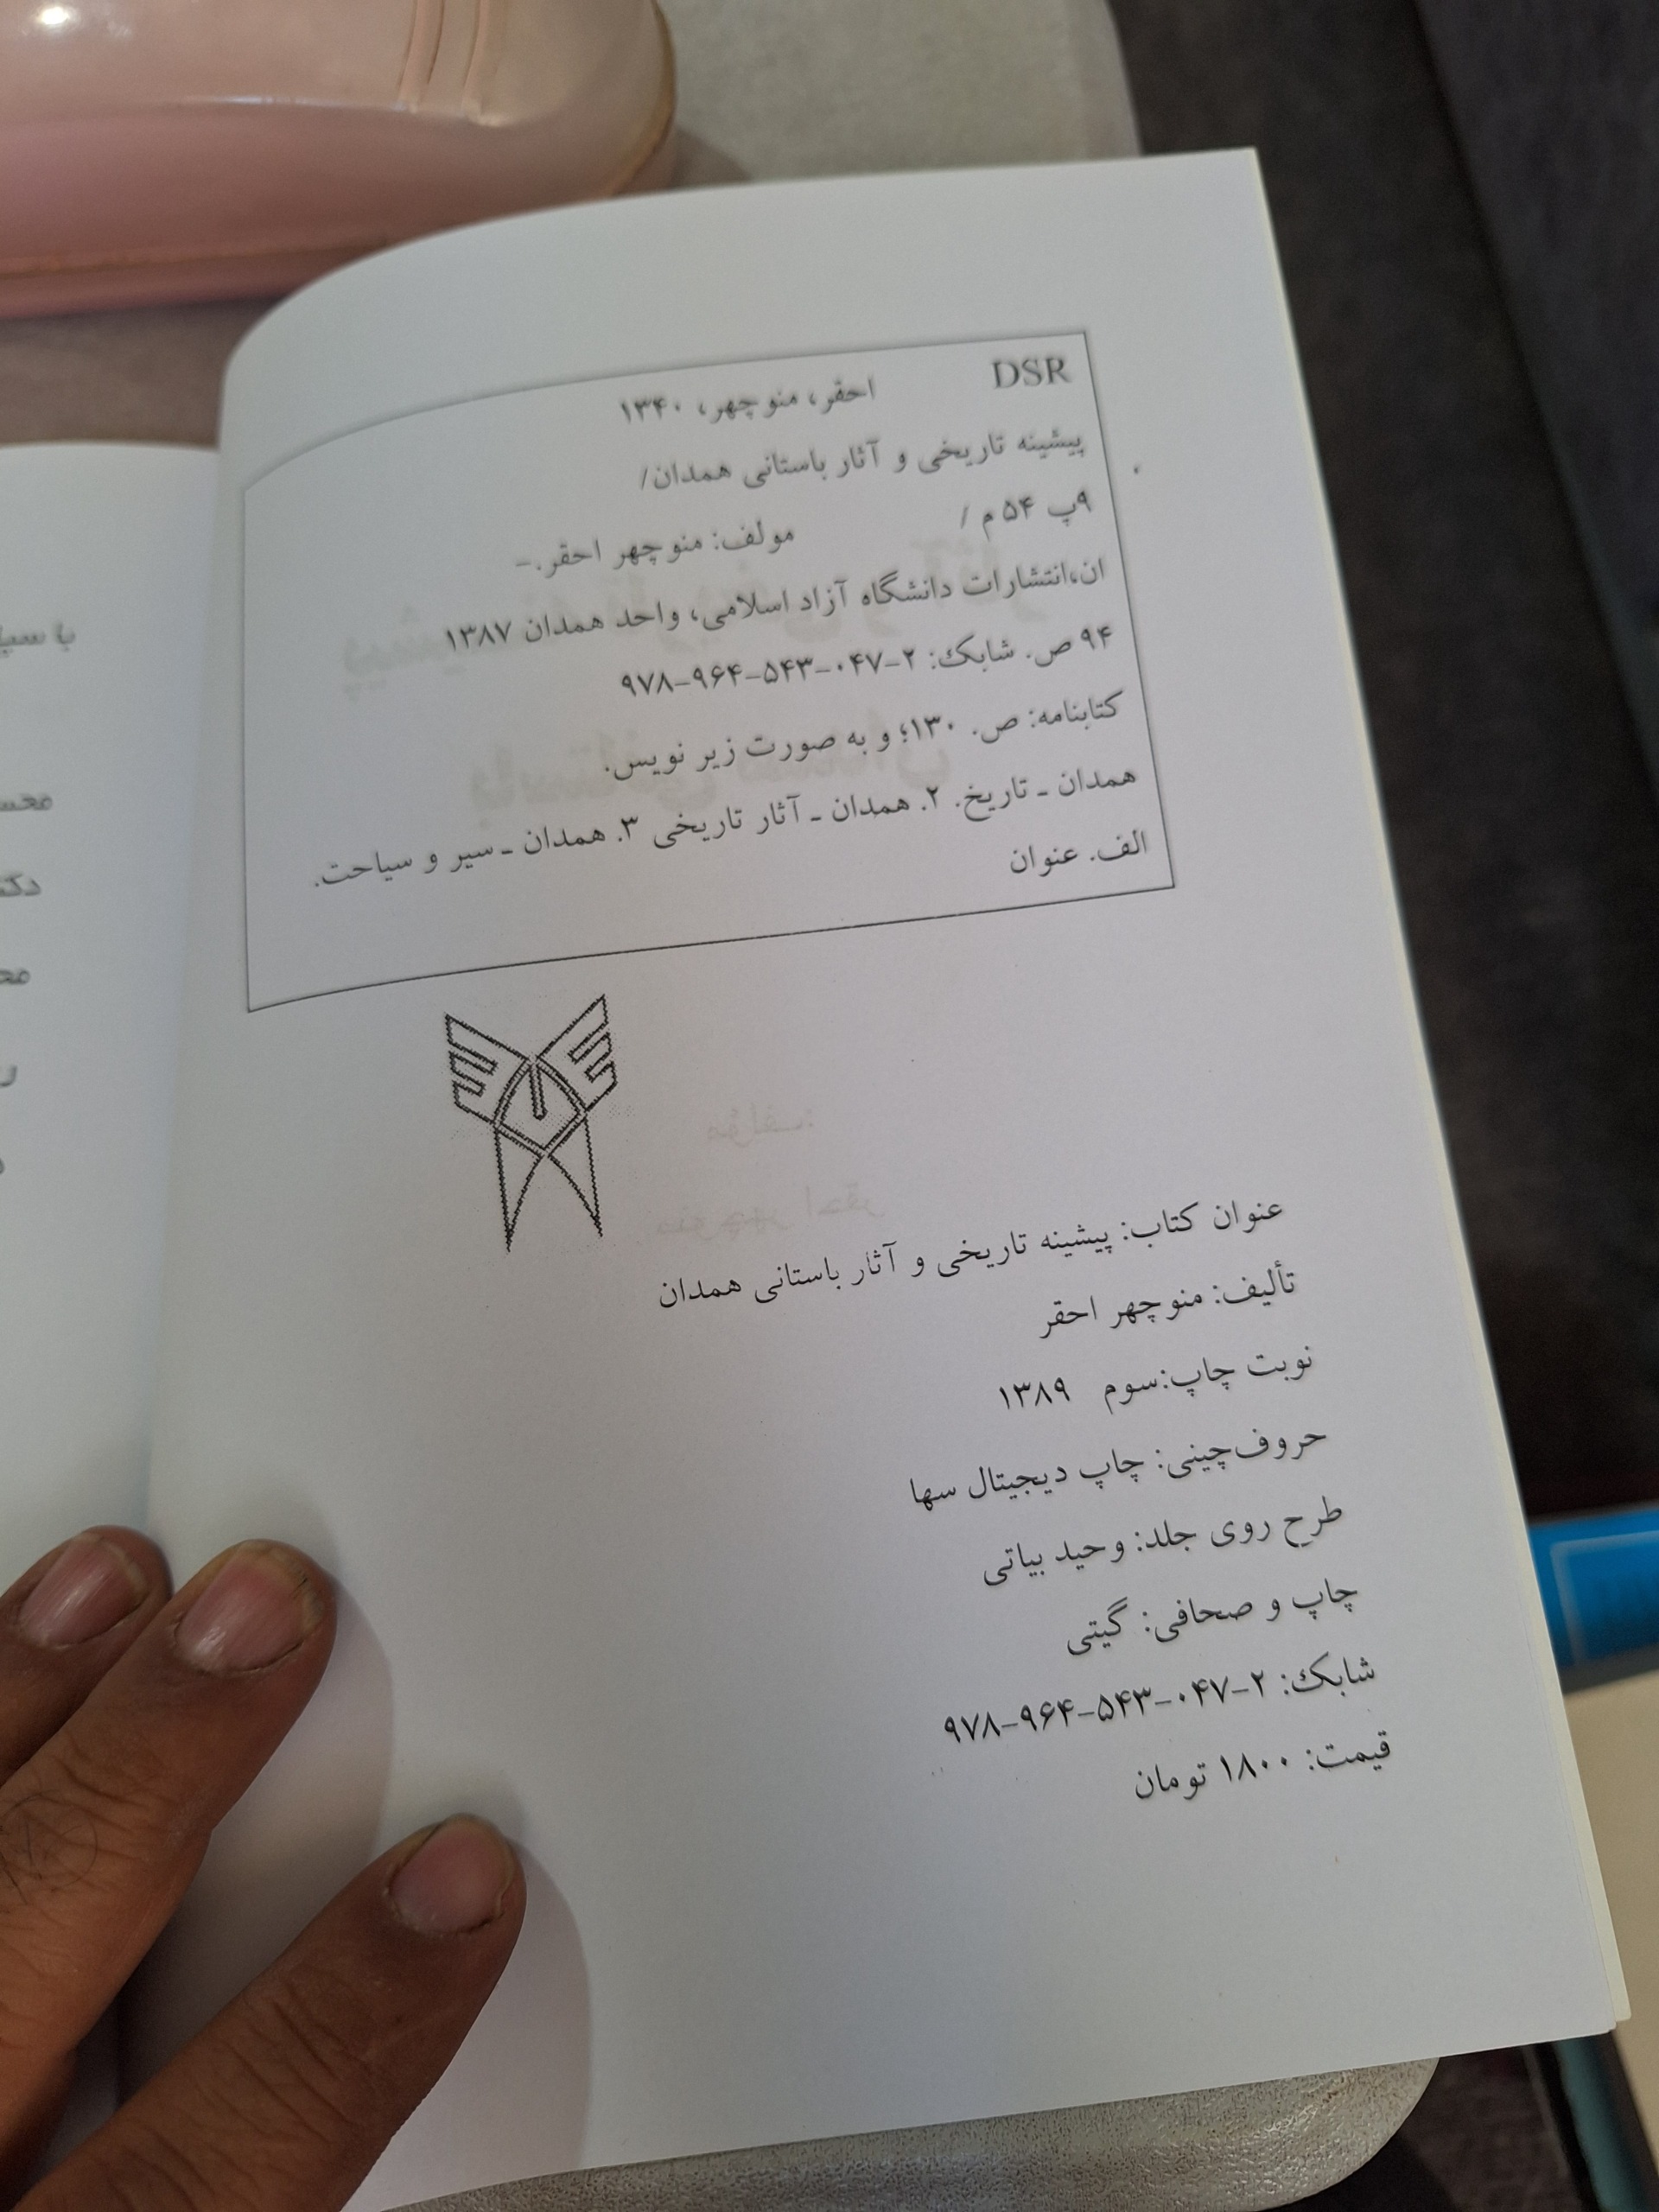 DSR احقر، منوچهر، ۱۳۴۰
پیشینه تاریخی و آثار باستانی همدان/
۹پ ۵۴ م / مولف: منوچهر احقر.-
ان،انتشارات دانشگاه آزاد اسلامی، واحد همدان ۱۳۸۷
۹۴ ص. شابک: ۲-۰۴۷-۵۴۳-۹۶۴-۹۷۸
کتابنامه: ص. ۱۳۰؛ و به صورت زیر نویس.
همدان ـ تاریخ. ۲. همدان ـ آثار تاریخی ۳. همدان ـ سیر و سیاحت.
الف. عنوان
عنوان کتاب: پیشینه تاریخی و آثار باستانی همدان
تألیف: منوچهر احقر
نوبت چاپ:سوم ۱۳۸۹
حروف‌چینی: چاپ دیجیتال سها
طرح روی جلد: وحید بیاتی
چاپ و صحافی: گیتی
شابک: ۲-۰۴۷-۵۴۳-۹۶۴-۹۷۸
قیمت: ۱۸۰۰ تومان